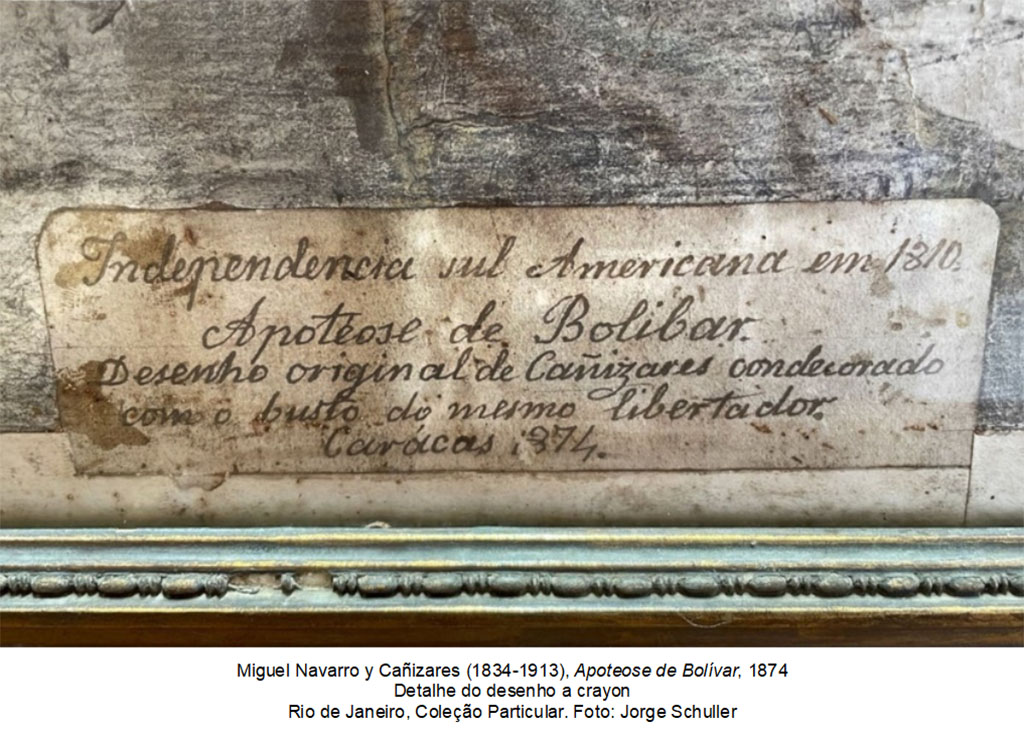 Independencia sul Americana em 1810.
Apoteose de Bolibar.
Desenho original de Cañizares condecorado
com o busto do mesmo libertador.
Carácas 1874.
Miguel Navarro y Cañizares (1834-1913), Apoteose de Bolívar, 1874
Detalhe do desenho a crayon
Rio de Janeiro, Coleção Particular. Foto: Jorge Schuller